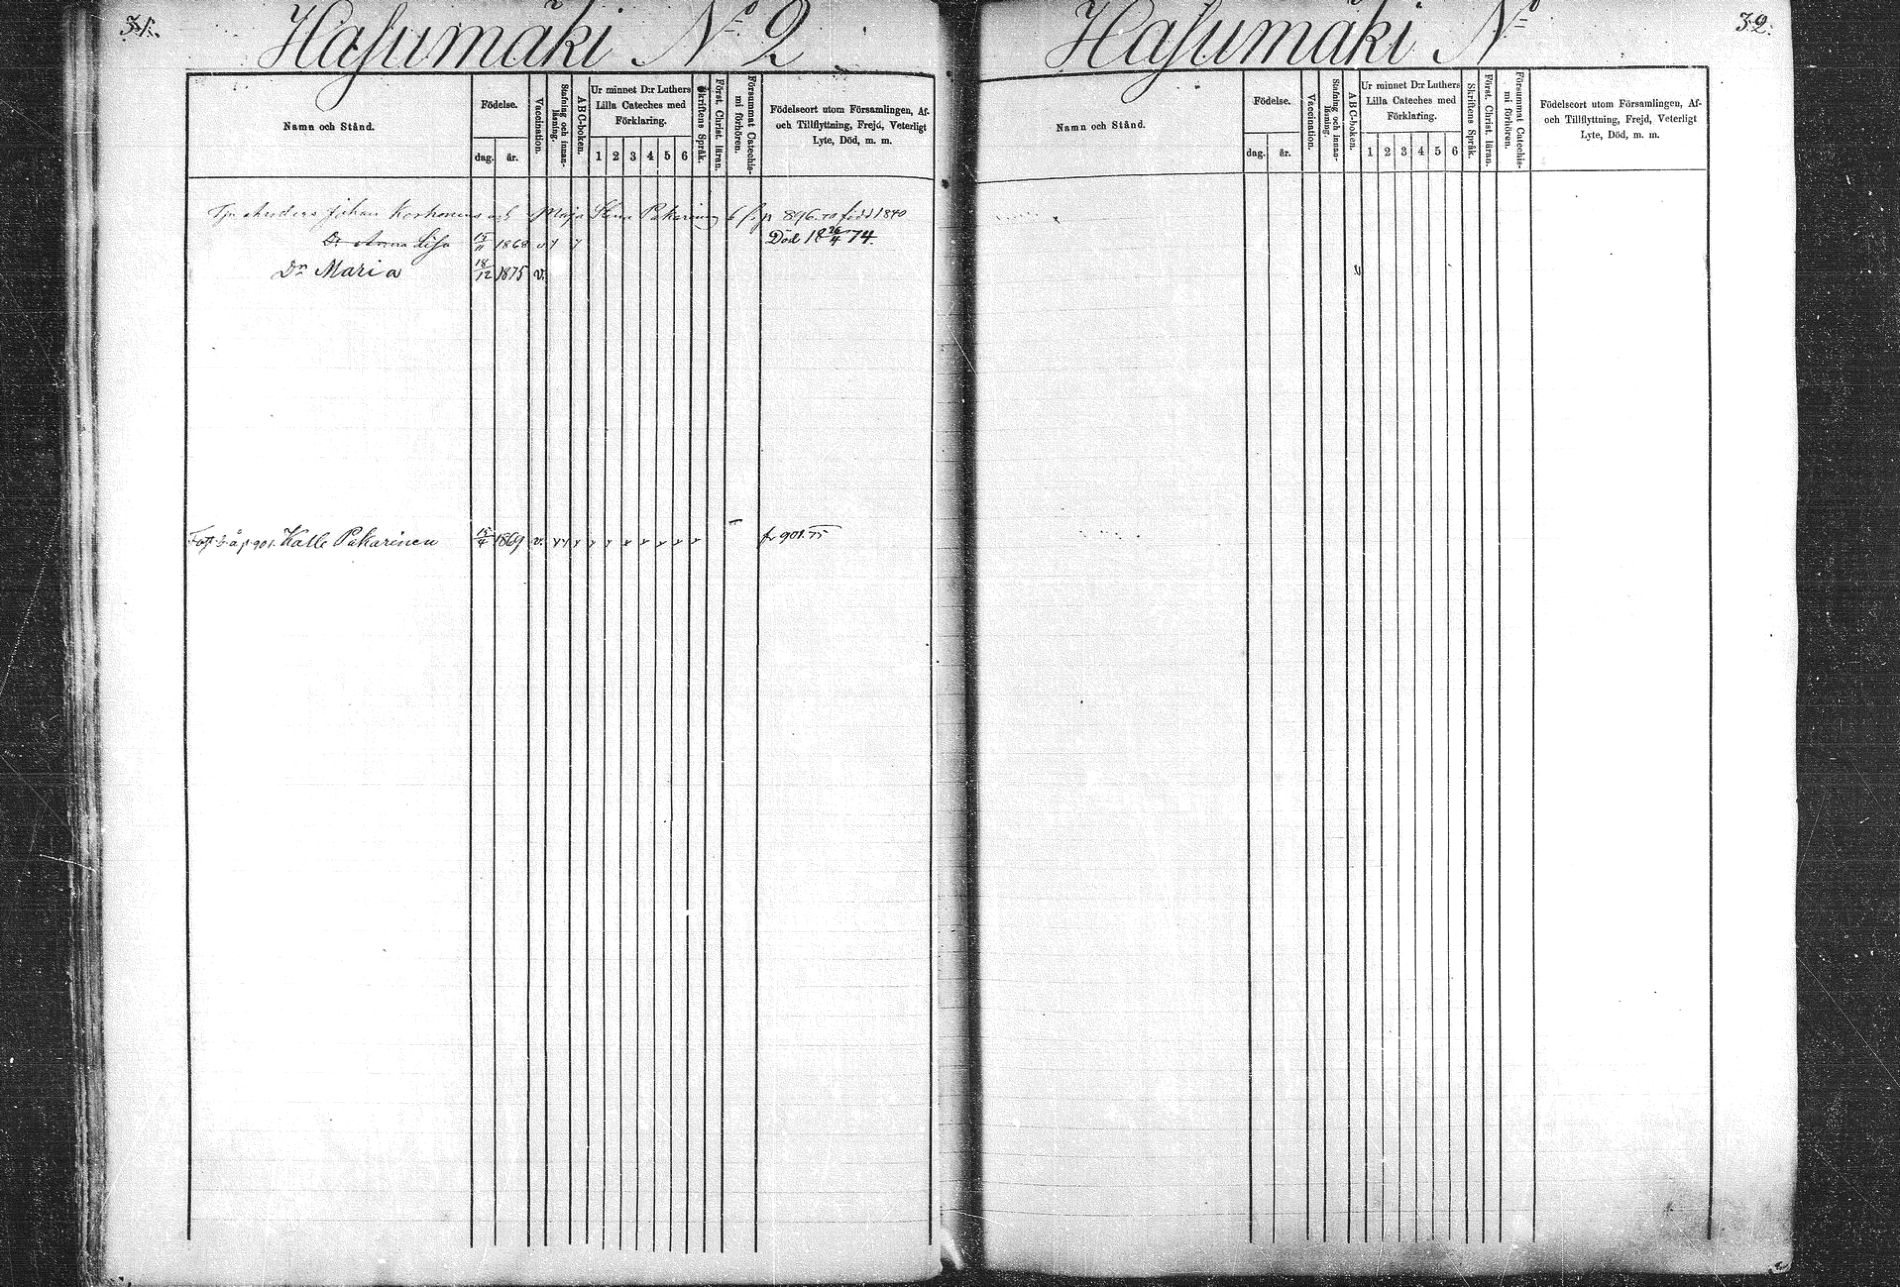 31.
Hasumäki No 2
Namn och Stånd.
Födelse.
dag.
år.
Vaccination.
Stafning och innan-
läsning.
ABC-boken.
Ur minnet D:r Luthers
Lilla Cateches med
Förklaring.
1 2 3 4 5 6
Skriftens Språk.
Först. Christ. läran.
Försummat Catechis-
mi förhören.
Födelseort utom Församlingen, Af-
och Tillflyttning, Frejd, Veterligt
Lyte, Död, m. m.
Johan Korhonens och Maja Stina Pakarinen 896. född 1840
Dr Anna Lisa 15/11 1868 Död 18 26/4 74.
Dr Maria 18/12 1875 v.
901. Kalle Pakarinen 15/4 1869 v. fr 901.75
32.
Hasumäki No
Namn och Stånd.
Födelse.
dag.
år.
Vaccination.
Stafning och innan-
läsning.
ABC-boken.
Ur minnet D:r Luthers
Lilla Cateches med
Förklaring.
1 2 3 4 5 6
Skriftens Språk.
Först. Christ. läran.
Försummat Catechis-
mi förhören.
Födelseort utom Församlingen, Af-
och Tillflyttning, Frejd, Veterligt
Lyte, Död, m. m.